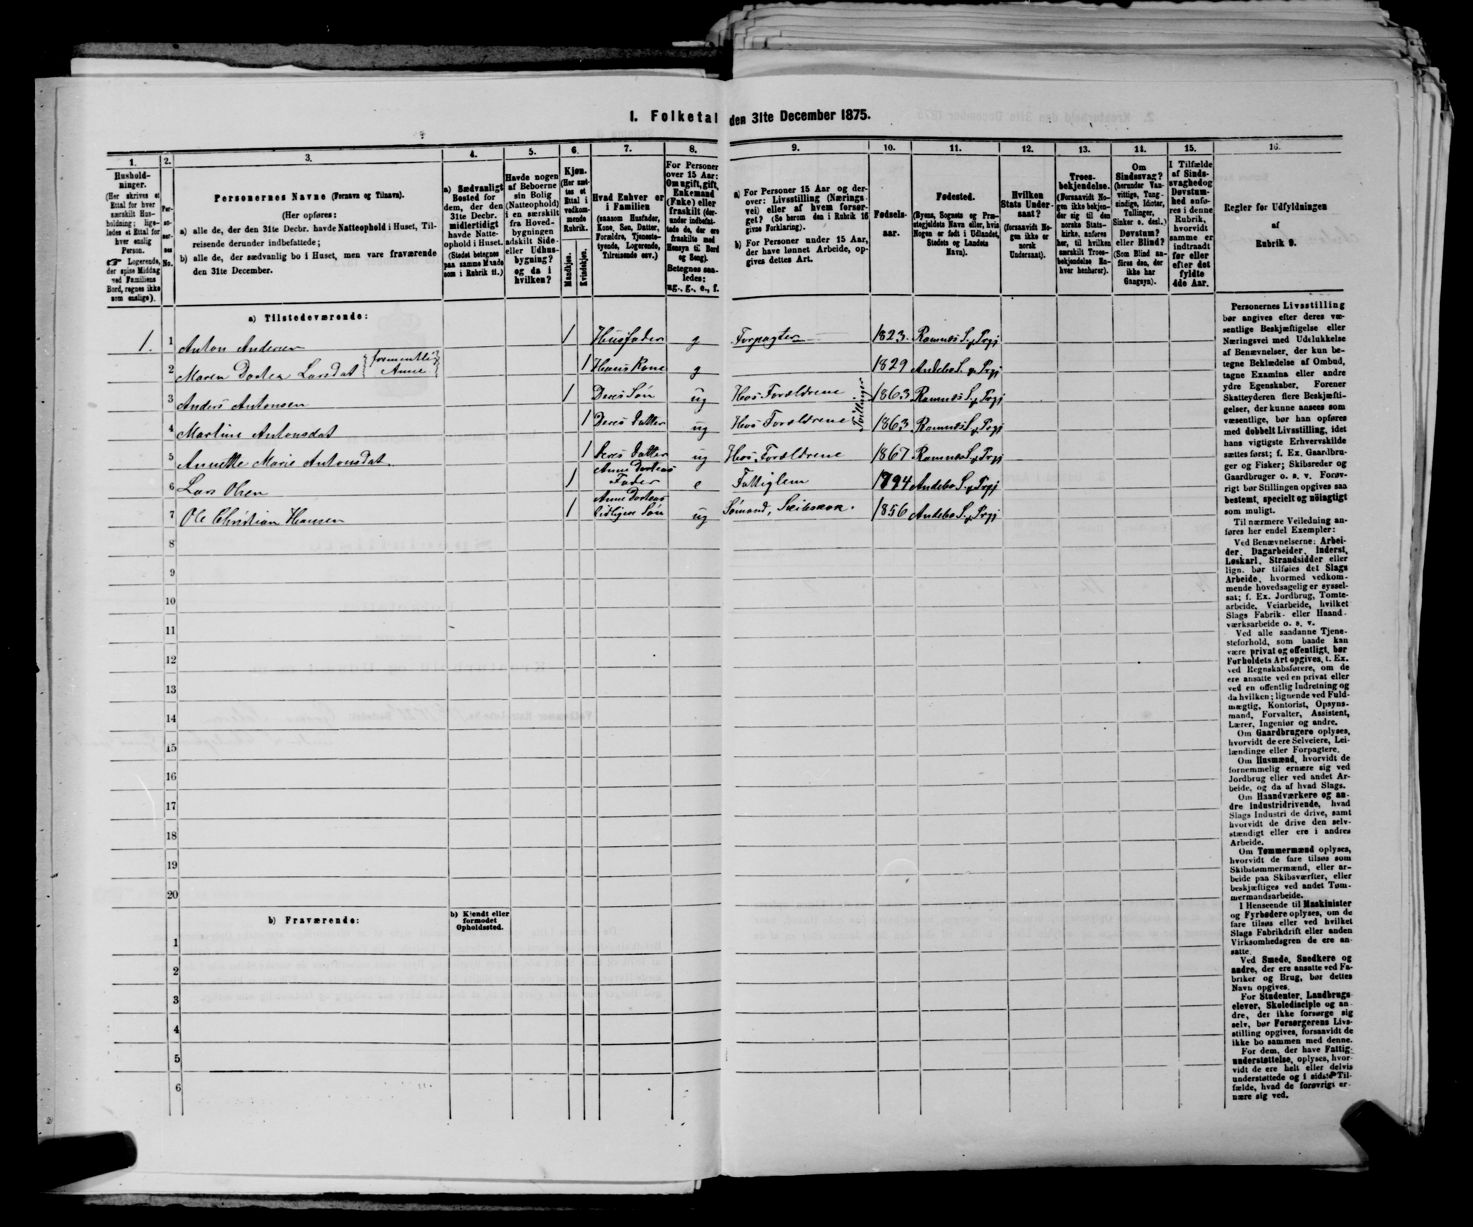 I. Folketal den 31te December 1875.
1. 2. 3. 4. 5. 6. 7. 8. 9. 10. 11. 12. 13. 14. 15. 16.
Hushold-
ninger.
(Her skrives et
Ettal for hver
særskilt Hus-
holdning; lige-
ledes et Ettal for
hver enslig
Person.
☞ Logerende,
der spise Middag
ved Familiens
Bord, regnes ikke
som enslige).
Per-
so-
ner-
nes
No.
Personernes Navne (Fornavn og Tilnavn).
(Her opføres:
a) alle de, der den 31te Decbr. havde Natteophold i Huset, Til-
reisende derunder indbefattede;
b) alle de, der sædvanlig bo i Huset, men vare fraværende
den 31te December.
a) Sædvanligt
Bosted for
dem, der den
31te Decbr.
midlertidigt
havde Natte-
ophold i Huset.
(Stedet betegnes
paa samme Maade
som i Rubrik 11.)
Havde nogen
af Beboerne
sin Bolig
(Natteophold)
i en særskilt
fra Hoved-
bygningen
adskilt Side-
eller Udhus-
bygning?
og da i
hvilken?
Kjøn.
(Her sæt-
tes et
Ettal i
vedkom-
mende
Rubrik.
Mandkjøn.
Kvindekjøn.
Hvad Enhver er
i Familien
(saasom Husfader,
Kone, Søn, Datter,
Forældre, Tjeneste-
tyende, Logerende,
Tilreisende osv.)
For Personer
over 15 Aar:
Om ugift, gift,
Enkemand
(Enke) eller
fraskilt (der-
under indbefat-
tede de, der ere
fraskilte med
Hensyn til Bord
og Seng).
Betegnes saa-
ledes:
ug., g., e., f.
a) For Personer 15 Aar og der-
over: Livsstilling (Nærings-
vei) eller af hvem forsør-
get? (Se herom den i Rubrik 16
givne Forklaring).
b) For Personer under 15 Aar,
der have lønnet Arbeide, op-
gives dettes Art.
Fødsels-
aar.
Fødested.
(Byens, Sognets og Præ-
stegjeldets Navn eller, hvis
Nogen er født i Udlandet,
Stedets og Landets
Navn).
Hvilken
Stats Under-
saat?
(forsaavidt No-
gen ikke er
norsk
Undersaat).
Troes-
bekjendelse.
(Forsaavidt No-
gen ikke bekjen-
der sig til den
norske Stats-
kirke, anføres
her, til hvilken
Troesbekjendelse En-
hver henhører).
Om
Sindssvag?
(herunder Van-
vittige, Tung-
sindige, Idioter,
Tullinger,
Sinker o. desl.)
Døvstum?
eller Blind?
(Som Blind an-
føres den, der
ikke har
Gangsyn).
I Tilfælde
af Sinds-
svaghed og
Døvstum-
hed anfø-
res i denne
Rubrik,
hvorvidt
samme er
indtraadt
før eller
efter det
fyldte
4de Aar.
Regler før Udfyldningen
af
Rubrik 9.
a) Tilstedeværende:
1. 1 Anton Andersen 1 Husfader g Forpagter 1823. Ramnæs S. & Prgj
2 Maren Dortea Larsdat {formentlig Anne} 1 Hans Kone g 1829 Andebo S. & Prgj
3 Anders Antonsen 1 Deres Søn ug Hos Forældrene Tvillinger 1863 Ramnæs S. & Prgj
4 Martine Antonsdat 1 Deres Datter ug Hos Forældrene 1863. Ramnæs S. & Prgj
5 Annette Marie Antonsdat. 1 Deres Datter ug Hos Forældrene 1867 Ramnæs S. & Prgj
6 Lars Olsen 1 Anne Dorteas Fader e Fattiglem 1794 Andebo S. & Prgj
7 Ole Christian Hansen 1 Anne Dorteas tidligere Søn ug Sømand, Skibskok. 1856 Andebo S. & Prgj
8
9
10
11
12
13
14
15
16
17
18
19
20
b) Fraværende:
b) Kjendt eller
formodet
Opholdssted.
1
2
3
4
5
6
Personernes Livsstilling
bør angives efter deres væ-
sentlige Beskjæftigelse eller
Næringsvei med Udelukkelse
af Benævnelser, der kun be-
tegne Beklædelse af Ombud,
tagne Examina eller andre
ydre Egenskaber. Forener
Skatteyderen flere Beskjæfti-
gelser, der kunne ansees som
væsentlige, bør han opføres
med dobbelt Livsstilling, idet
hans vigtigste Erhvervskilde
sættes først; f. Ex. Gaardbru-
ger og Fisker; Skibsreder og
Gaardbruger o. s. v. Forøv-
rigt bør Stillingen opgives saa
bestemt, specielt og nøiagtigt
som muligt.
Til nærmere Veiledning an-
føres her endel Exempler:
Ved Benævnelserne: Arbei-
der, Dagarbeider, Inderst,
Løskarl, Strandsidder eller
lign. bør tilføies det Slags
Arbeide, hvormed vedkom-
mende hovedsagelig er syssel-
sat; f. Ex. Jordbrug, Tomte-
arbeide, Veiarbeide, hvilket
Slags Fabrik- eller Haand-
værksarbeide o. s. v.
Ved alle saadanne Tjene-
steforhold, som baade kan
være privat og offentligt, bør
Forholdets Art opgives, t. Ex.
ved Regnskabsførere, om de
ere ansatte ved en privat eller
ved en offentlig Indretning og
da hvilken; lignende ved Fuld-
mægtig, Kontorist, Opsyns-
mand, Forvalter, Assistent,
Lærer, Ingeniør og andre.
Om Gaardbrugere oplyses,
hvorvidt de ere Selveiere, Lei-
lændinge eller Forpagtere.
Om Husmænd, hvorvidt de
fornemmelig ernære sig ved
Jordbrug eller ved andet Ar-
beide, og da af hvad Slags.
Om Haandværkere og an-
dre industridrivende, hvad
Slags Industri de drive, samt
hvorvidt de drive den selv-
stændigt eller ere i andres
Arbeide.
Om Tømmermænd oplyses,
hvorvidt de fare tilsøs som
Skibstømmermænd, eller ar-
beide paa Skibsværfter, eller
beskjæftiges ved andet Tøm-
mermandsarbeide.
I Henseende til Maskinister
og Fyrbødere oplyses, om de
fare tilsøs eller ved hvilket
Slags Fabrikdrift eller anden
Virksomhedsgren de ere an-
satte.
Ved Smede, Snedkere og
andre, der ere ansatte ved Fa-
briker og Brug, bør dettes
Navn opgives.
For Studenter, Landbrugs-
elever, Skoledisciple og an-
dre, der ikke forsørge sig
selv, bør Forsørgerens Livs-
stilling opgives, forsaavidt de
ikke bo sammen med denne.
For dem, der have Fattig-
understøttelse, oplyses, hvor-
vidt de ere helt eller delvis
understøttede og i sidste Til-
fælde, hvad de forøvrigt er-
nære sig ved.